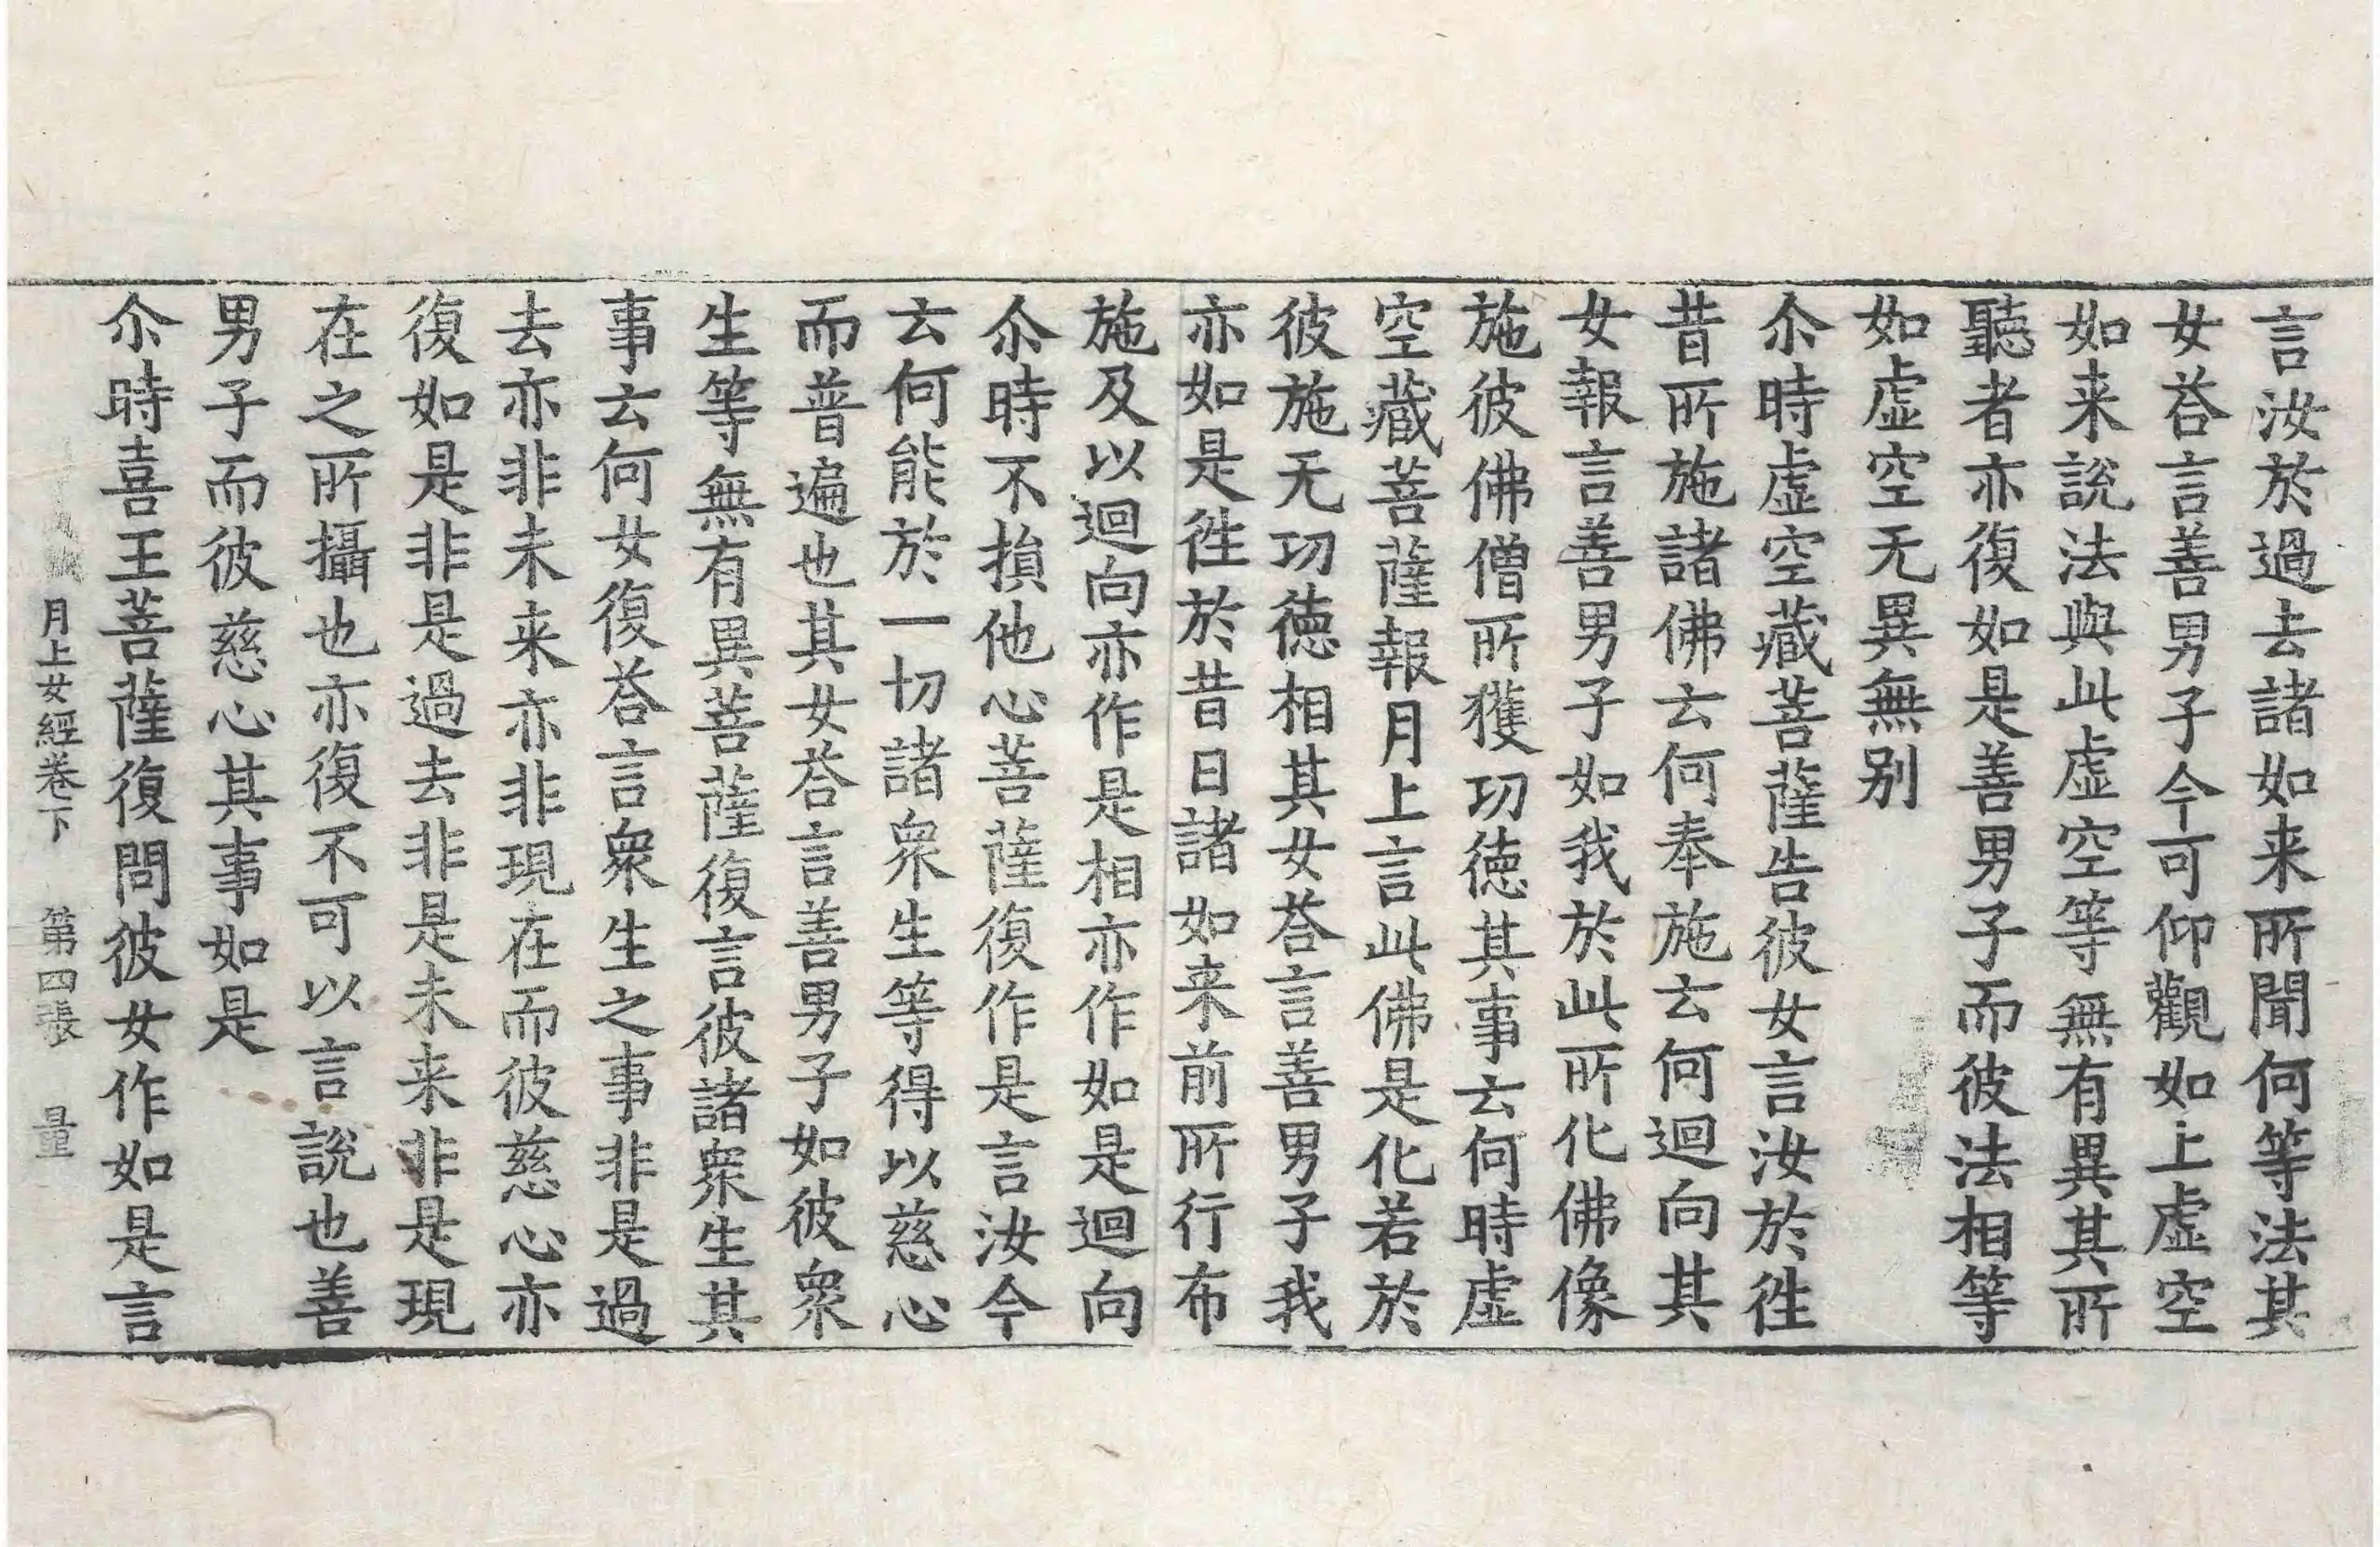 言汝於過去諸如来所聞何等法其
女荅言善男子今可仰觀如上虛空
如来說法與此虛空等無有異其所
聽者亦復如是善男子而彼法相等
如虛空无異無别
尒時虛空藏菩薩告彼女言汝於徃
昔所施諸佛云何奉施云何迴向其
女報言善男子如我於此所化佛像
施彼佛僧所獲功徳其事云何時虛
空藏菩薩報月上言此佛是化若於
彼施无功徳相其女荅言善男子我
亦如是徃於昔日諸如来前所行布
施及以迴向亦作是相亦作如是迴向
尒時不損他心菩薩復作是言汝今
云何能於一切諸衆生等得以慈心
而普遍也其女荅言善男子如彼衆
生等無有異菩薩復言彼諸衆生其
事云何女復荅言衆生之事非是過
去亦非未来亦非現在而彼慈心亦
復如是非是過去非是未来非是現
在之所攝也亦復不可以言說也善
男子而彼慈心其事如是
尒時喜王菩薩復問彼女作如是言
月上女經卷下　第四張　量